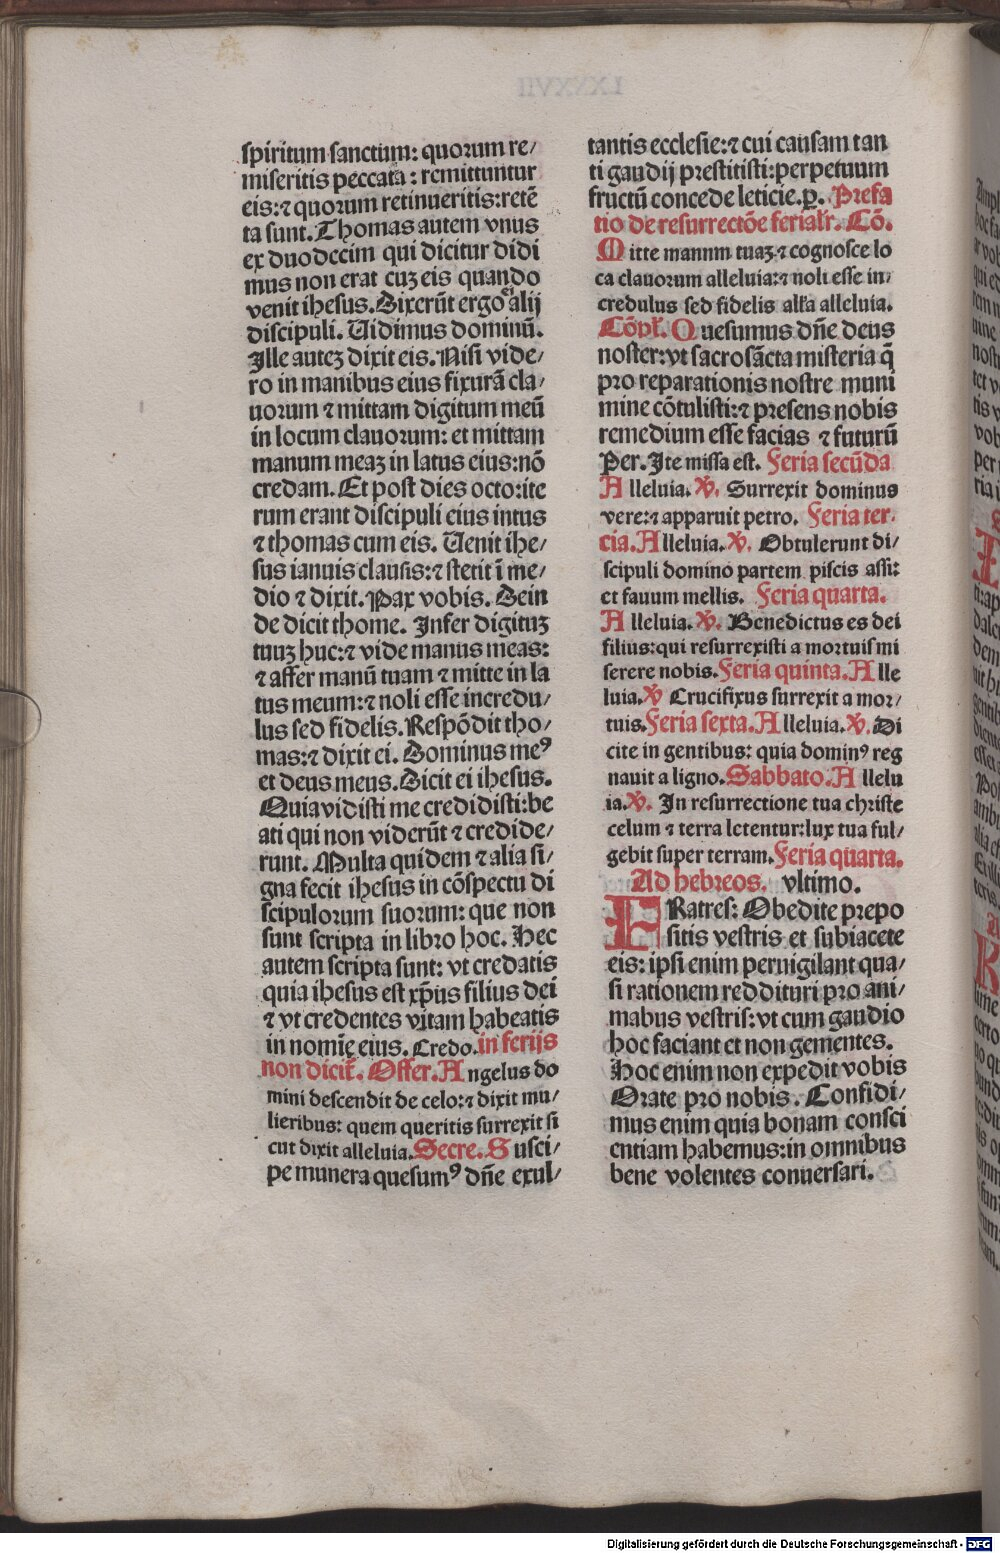 spiritum sanctum: quorum re/
miseritis peccata: remittuntur
eis: ⁊ quorum retinueritis: retē
ta sunt. Thomas autem vnus
ex duodecim qui dicitur didi
mus non erat cuꝫ eis quando
venit ihesus. Dixerūt ergo ei alij
discipuli. Uidimus dominū.
Ille auteꝫ dixit eis. Nisi vide/
ro in manibus eius fixurā cla/
uorum ⁊ mittam digitum meū
in locum clauorum: et mittam
manum meaꝫ in latus eius: nō
credam. Et post dies octo: ite
rum erant discipuli eius intus
⁊ thomas cum eis. Uenit ihe/
sus ianuis clausis: ⁊ stetit ī me/
dio ⁊ dixit. Pax vobis. Dein
de dicit thome. Infer digituꝫ
tuuꝫ huc: ⁊ vide manus meas:
⁊ affer manū tuam ⁊ mitte in la
tus meum: ⁊ noli esse incredu/
lus sed fidelis. Respōdit tho/
mas: ⁊ dixit ei. Dominus meꝰ
et deus meus. Dicit ei ihesus.
Quia vidisti me credidisti: be
ati qui non viderūt ⁊ credide/
runt. Multa quidem ⁊ alia si/
gna fecit ihesus in cōspectu di
scipulorum suorum: que non
sunt scripta in libro hoc. Hec
autem scripta sunt: vt credatis
quia ihesus est xp̄us filius dei
⁊ vt credentes vitam habeatis
in nomīe eius. Credo. in ferijs
non dicit̄. Offer. Angelus do
mini descendit de celo: ⁊ dixit mu/
lieribus: quem queritis surrexit si
cut dixit alleluia. Secre. Susci/
pe munera quesumꝰ dn̄e exul/
tantis ecclesie: ⁊ cui causam tan
ti gaudij prestitisti: perpetuum
fructū concede leticie. p. Prefa
tio de resurrectōe ferialr̄. Cō.
Mitte manum tuaꝫ ⁊ cognosce lo
ca clauorum alleluia: ⁊ noli esse in/
credulus sed fidelis alľa alleluia.
Cōpl̄. Quesumus dn̄e deus
noster: vt sacrosācta misteria q̄
pro reparationis nostre muni
mine cōtulisti: ⁊ presens nobis
remedium esse facias ⁊ futurū
Per. Ite missa est. Feria secūda
Alleluia. V̓. Surrexit dominus
vere: ⁊ apparuit petro. Feria ter/
cia. Alleluia. V̓. Obtulerunt di/
scipuli domino partem piscis assi:
et fauum mellis. Feria quarta.
Alleluia. V̓. Benedictus es dei
filius: qui resurrexisti a mortuis mi
serere nobis. Feria quinta. Alle
luia. V̓ Crucifixus surrexit a mor/
tuis. Feria sexta. Alleluia. V̓. Di
cite in gentibus: quia dominꝰ reg
nauit a ligno. Sabbato. Allelu
ia. V̓. In resurrectione tua christe
celum ⁊ terra letentur: lux tua ful/
gebit super terram. Feria quarta.
Ad hebreos. vltimo.
FRatres: Obedite prepo
sitis vestris et subiacete
eis: ipsi enim peruigilant qua/
si rationem reddituri pro ani/
mabus vestris: vt cum gaudio
hoc faciant et non gementes.
Hoc enim non expedit vobis
Orate pro nobis. Confidi/
mus enim quia bonam consci
entiam habemus: in omnibus
bene volentes conuersari.
Digitalisierung gefördert durch die Deutsche Forschungsgemeinschaft - DFG